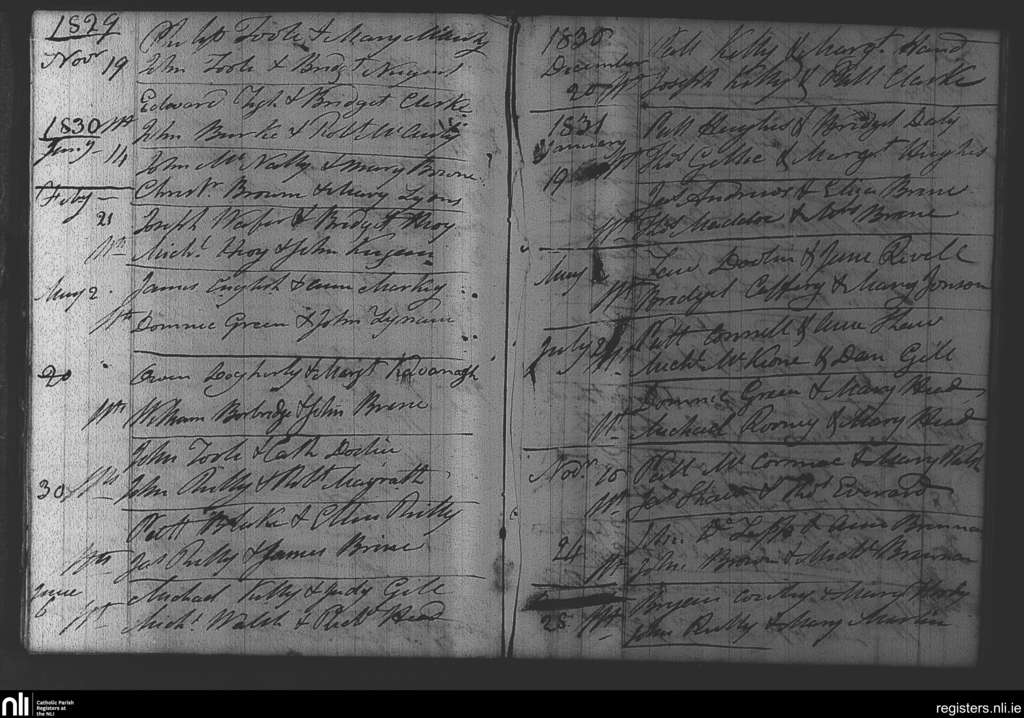 1829
Philip Toole & Mary
Novr 19 John Toole & Bridgt Nugent
Edward Tigh & Bridget Clarke
1830 Wts John Burke & Robt McAuly
Jany 14 John McNally & Mary Brene
Christr Brown & Mary Lyons
Feby 21 Joseph Wafer & Bridget Hoey
Wts Michl Hoey & John
May 2 James English & Anne Markey
Wts Domnic Green & John Lynam
20 Owen Dogherty & Margt Kavanagh
Wts William Borbridge & John Brene
John Toole & Cath Doolin
30 Wts John Reilly & Robt Magrath
Patt & Ellen Reilly
Wts Jas Reilly & James Brene
June 6 Michael Kelly & Judy Gill
Wts Michl Walsh & Head
1830
Patt Kelly & Margt Hand
December
20 Wts Joseph Kelly & Patt Clarke
1831
Patt Hughes & Bridget Daly
January
19 Wts Thos & Margt Hughes
Jas Andrews & Eliza Brene
Wts Thos Maddox & Brene
May Doolin & Jane Revell
Wts Bridget Caffery & Mary Jonson
July Patt Connell & Anne Shaw
Wts Michl McKeone & Dan Gill
Domnic Green & Mary Head
Wts Michael Rooney & Mary Head
Novr 10 Patt McCormac & Mary Walsh
Wts Jas Shaw & Thos Everard
John & Anne Brennan
24 Wts John Brown & Michl Brennan
Bryan & Mary
28 Wts John Reilly & Mary Martin
nli Catholic Parish
Registers at
the NLI
registers.nli.ie